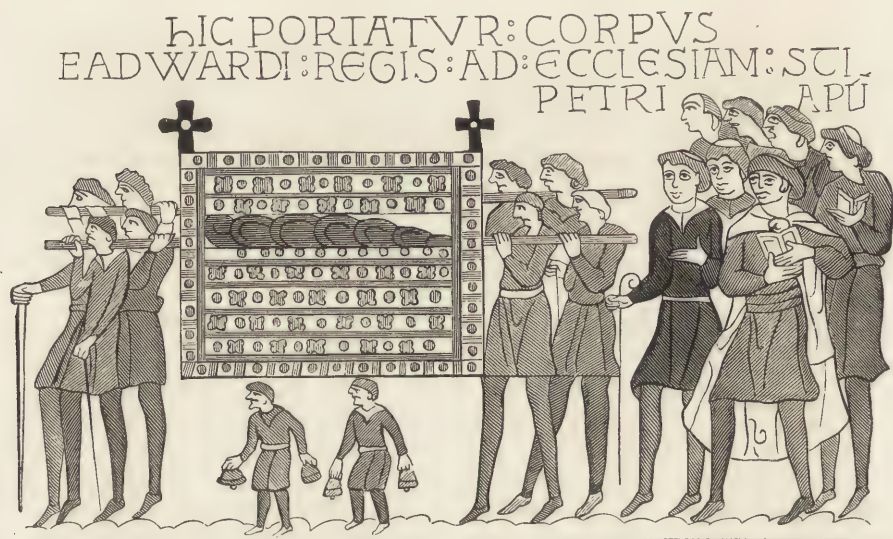 hIC PORTATVR : CORPVS
EADWARDI : REGIS : AD : ECCLESIAM : SCĪ
PETRI APŪ